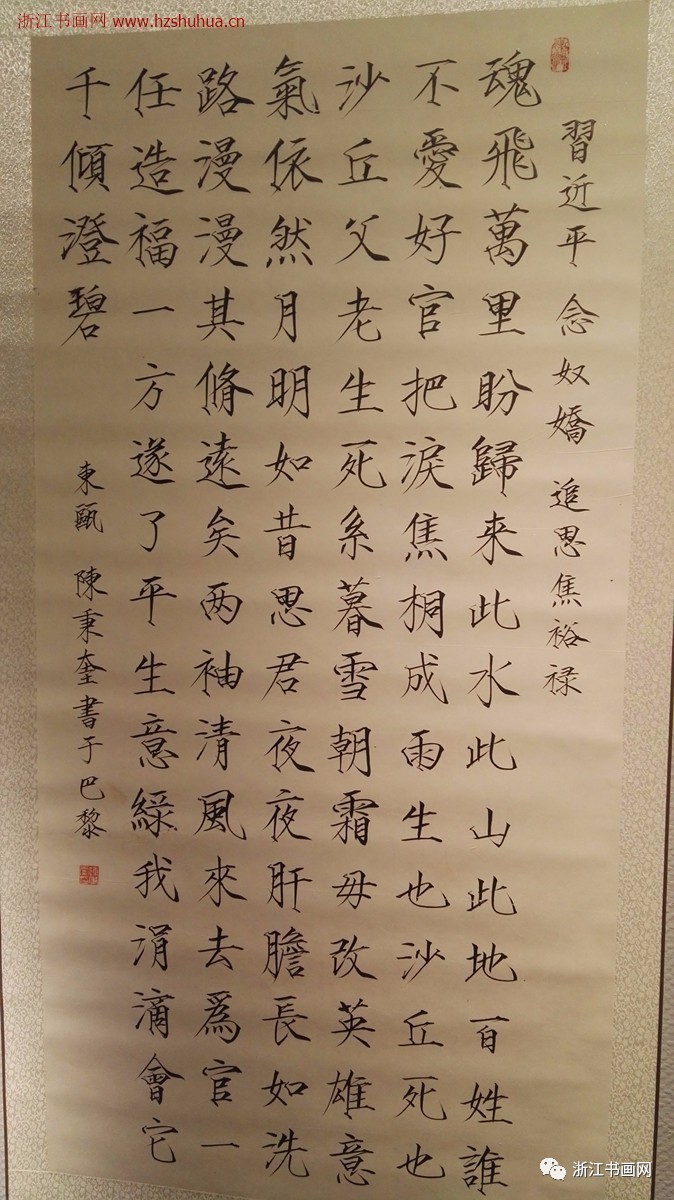 浙江书画网 www.hzshuhua.cn
習近平 念奴嬌 追思焦裕禄
魂飛萬里盼歸来此水此山此地百姓誰
不愛好官把淚焦桐成雨生也沙丘死也
沙丘父老生死系暮雪朝霜毋改英雄意
氣依然月明如昔思君夜夜肝膽長如洗
路漫漫其脩遠矣两袖清風來去爲官一
任造福一方遂了平生意綠我涓滴會它
千傾澄碧
東甌 陳秉奎書于巴黎
浙江书画网